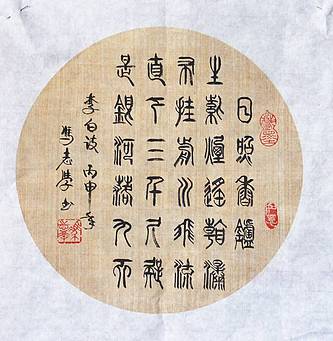 日照香鑪
生紫煙遙看瀑
布挂前川飛流
直下三千尺疑
是銀河落九天
李白詩 丙申年
志學书